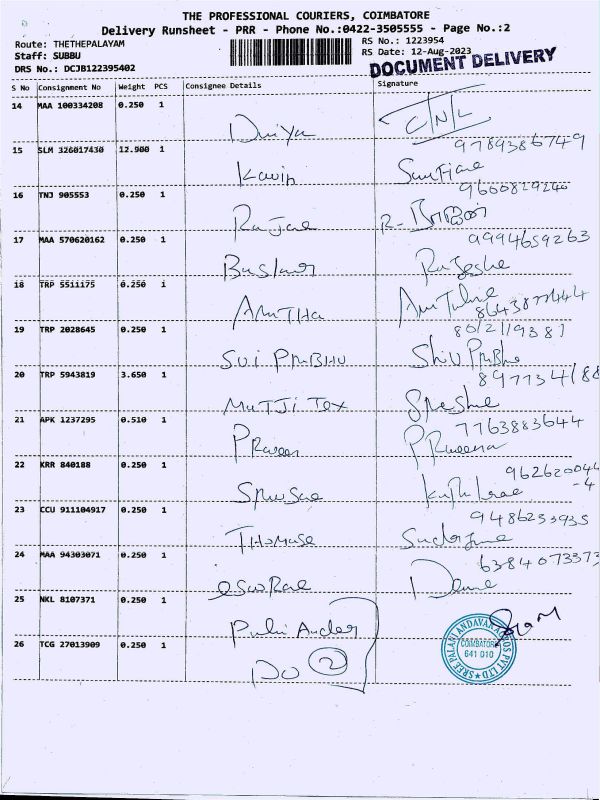 THE PROFESSIONAL COURIERS, COIMBATORE
Delivery Runsheet - PRR - Phone No.:0422-3505555 - Page No.:2
Route: THETHEPALAYAM
RS No.: 1223954
Staff: SUBBU
RS Date: 12-Aug-2023
DRS No.: DCJB122395402
DOCUMENT DELIVERY
S No Consignment No Weight PCS Consignee Details Signature
14 MAA 100334208 0.250 1
Divya
15 SLM 326017430 12.900 1 9789386749
Kavin
16 TNJ 905553 0.250 1 9600829240
17 MAA 570620162 0.250 1 9994659263
18 TRP 5511175 0.250 1
AmuTHa
19 TRP 2028645 0.250 1
SUI PRABHU Shiv Prabhu
20 TRP 5943819 3.650 1
MuTJi Tex
21 APK 1237295 0.510 1 7763883644
PRaveen PRaveena
22 KRR 840188 0.250 1
23 CCU 911104917 0.250 1 9486233935
24 MAA 94303071 0.250 1 6384073373
25 NKL 8107371 0.250 1
26 TCG 27013909 0.250 1
DO 2
SREE PALANI ANDAVAR AGROS PVT LTD
COIMBATORE
641 010